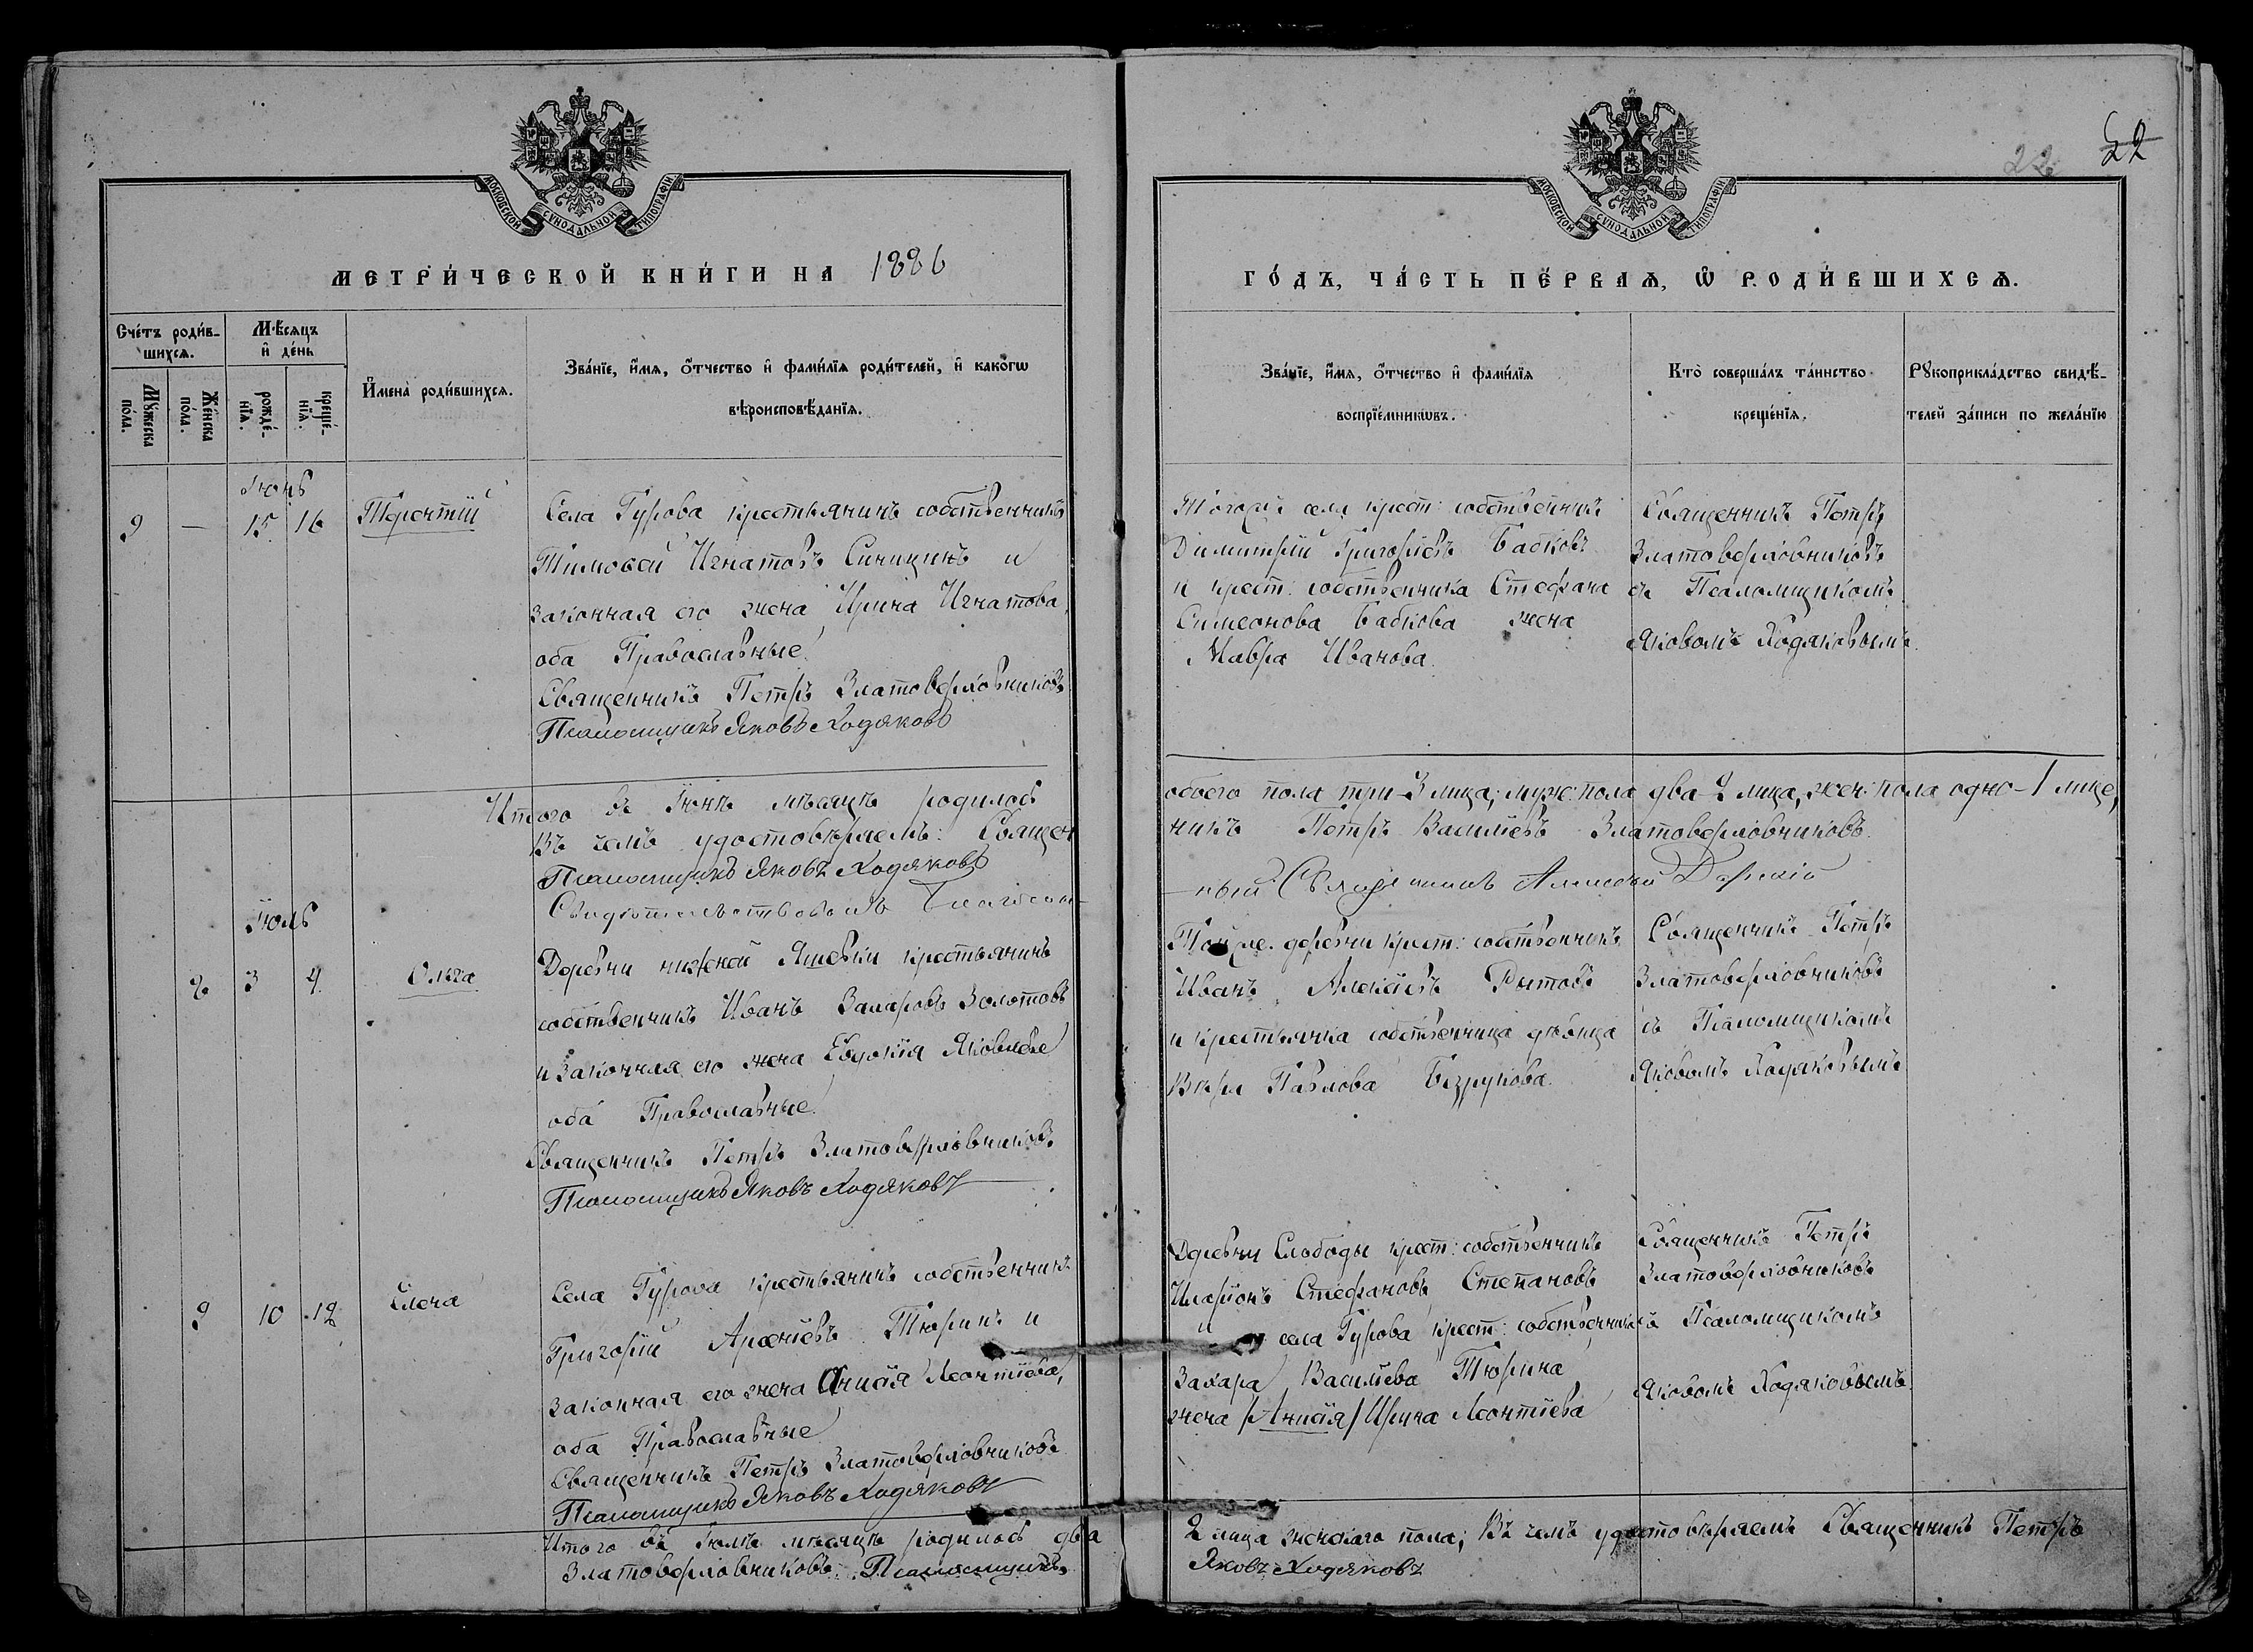 22
22
МОСКОВСКОЙ СѴНОДАЛЬНОЙ ТИПОГРАФІИ
МЕТРИ́ЧЕСКОЙ КНИ́ГИ НА 1886
Сче́тъ роди́в-
шихсѧ.
Мѣ́сѧцъ
и҆ де́нь
Мꙋ́жеска
по́ла.
Же́нска
по́ла.
рожде́-
нїѧ.
креще́-
нїѧ.
И҆мена̀ роди́вшихсѧ.
Зва́нїе, и҆́мѧ, ѻ҆́тчество и҆ фами́лїѧ роди́телей, и҆ како́гѡ
вѣроисповѣ́данїѧ.
Іюнь
9 — 15 16 Терентій
Села Гурова крестьянинъ собственникъ
Тимоѳей Игнатовъ Синицинъ и
законная его жена Ирина Игнатова,
оба Православные.
Священникъ Петръ Златоверховниковъ
Псаломщикъ Яковъ Ходяковъ
Итого въ Іюнѣ мѣсяцѣ родилось
Въ чемъ удостовѣряемъ: Священ
Псаломщикъ Яковъ Ходяковъ
Свидѣтельствовалъ Благочин-
Іюль
2 3 4 Ольга
Деревни нижней Яшевки крестьянинъ
собственникъ Иванъ Захаровъ Золотовъ
и законная его жена Евдокія Яковлева
оба Православные.
Священникъ Петръ Златоверховниковъ
Псаломщикъ Яковъ Ходяковъ
3 10 12 Елена
Села Гурова крестьянинъ собственникъ
Григорій Арсеніевъ Тюринъ и
законная его жена Анисія Леонтіева,
оба Православные
Священникъ Петръ Златоверховниковъ
Псаломщикъ Яковъ Ходяковъ
Итого въ Іюлѣ мѣсяцѣ родилось два
Златоверховниковъ. Псаломщикъ
МОСКОВСКОЙ СѴНОДАЛЬНОЙ ТИПОГРАФІИ
ГО́ДЪ, ЧА́СТЬ ПЕ́РВАѦ, Ѽ РОДИ́ВШИХСѦ.
Зва́нїе, и҆́мѧ, ѻ҆́тчество и҆ фами́лїѧ
воспрїе́мникѡвъ.
Кто̀ соверша́лъ та́инство
креще́нїѧ.
Рꙋкоприкла́дство свидѣ́-
телей за́писи по жела́нїю
Тогожъ села крест: собственникъ
Димитрій Григорьевъ Бабковъ
и крест: собственника Стефана
Симеонова Бабкова жена
Мавра Иванова.
Священникъ Петръ
Златоверховниковъ
съ Псаломщикомъ
Яковомъ Ходяковымъ.
обоего пола три-3 лица; муж: пола два-2 лица, жен: пола одно-1 лице,
никъ Петръ Василіевъ Златоверховниковъ.
ный Священникъ Алексѣй
Той же деревни крест: собственникъ
Иванъ Алексѣевъ Рытовъ
и крестьянка собственница дѣвица
Вѣра Павлова Безрукова.
Священникъ Петръ
Златоверховниковъ
съ Псаломщикомъ
Яковомъ Ходяковымъ
Деревни Слободы крест: собственникъ
Иларіонъ Стефановъ Степановъ
и села Гурова крест: собственника
Захара Василіева Тюрина
жена /Анисія/ Ирина Леонтіева
Священникъ Петръ
Златоверховниковъ
съ Псаломщикомъ
Яковомъ Ходяковымъ.
2 лица женскаго пола; Въ чемъ удостовѣряемъ Священникъ Петръ
Яковъ Ходяковъ